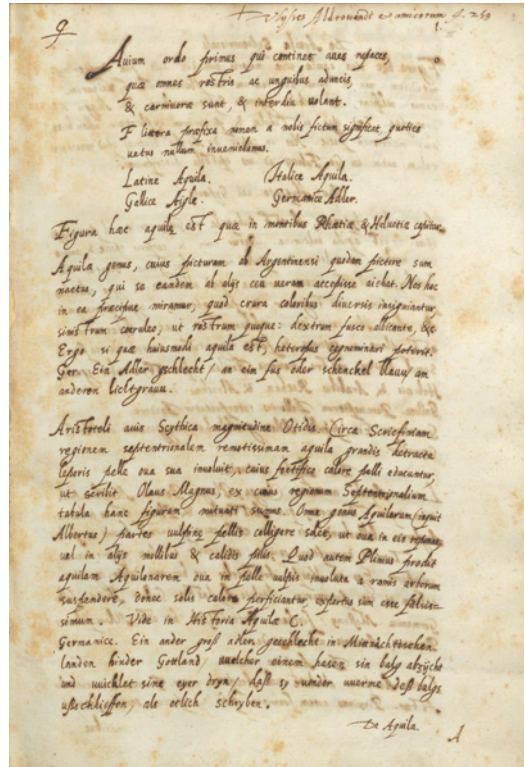 9
Ulysses Aldrovandi et amicorum f. 259
1.
Avium ordo primus qui continet aues rapaces,
quæ omnes rostris ac unguibus aduncis,
& carniuoræ sunt, & interdiu uolant.
F littera præfixa nomen a nobis fictum significet, quoties
uetus nullum inueniebamus.
Latine Aquila. Italice Aquila.
Gallice Aigle. Germanice Adler.
Figura hæc aquilæ est quæ in montibus Rhætiæ & Heluetiæ capitur.
Aquilæ genus, cuius picturam ab Argentinensi quodam pictore sum
nactus, qui se eandem ab alijs ceu ueram accepisse aiebat. Nos hoc
in ea præcipue miramur, quod crura coloribus diuersis insigniantur,
sinistrum cœruleo, ut rostrum quoque: dextrum fusco albicante, &c
Ergo si quæ huiusmodi aquila est, heteropus cognominari poterit.
Ger. Ein Adler gschlecht / an ein fus oder schenckel blauu / am
anderen liechtgrauu.
Aristoteli auis Scythica magnitudine Otidis. Circa Scricfiniam
regionem septentrionalem remotissimam aquila grandis detracta
leporis pelle oua sua inuoluit, cuius fœtifico calore pulli educuntur,
ut scribit Olaus Magnus, ex cuius regionum Septentrionalium
tabula hanc figuram mutuati sumus. Omne genus Aquilarum (inquit
Albertus) partes uulpinæ pellis colligere solet, ut oua in eis reponat,
uel in alijs mollibus & calidis pilis. Quod autem Plinius prodit
aquilam Aquilonarem oua in pelle uulpis inuoluta a ramis arborum
suspendere, donec solis calore perficiantur, expertus sum esse falsis-
simum. Vide in Historia Aquilæ C.
Germanice. Ein ander groß adler geschlecht in Mitnächtischen
landen hinder Gotland, uuelcher einem hasen sin balg abzücht
und uuicklet sine eyer dryn / daß sy under uuerme deß balgs
ußschlieffen, als etlich schryben.
De Aquila.
A